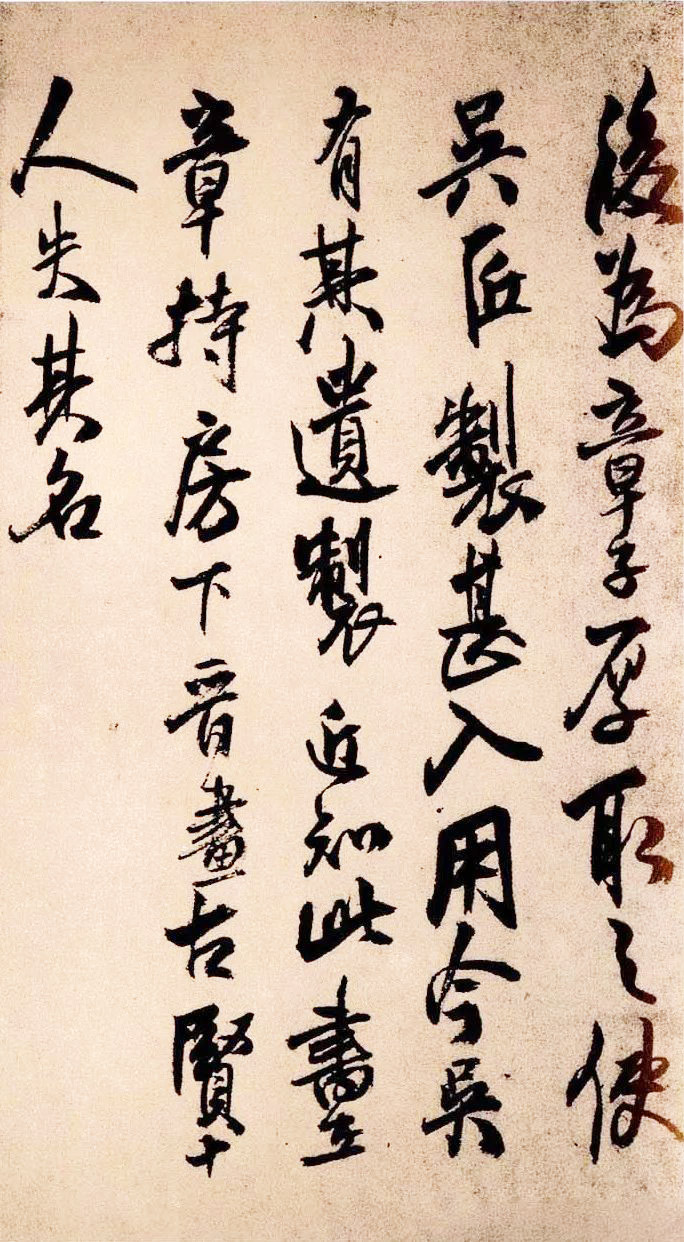 後為章子厚取之使
吳匠製甚入用今吳
有其遺製近知此書在
章持房下音畫古賢十
人失其名